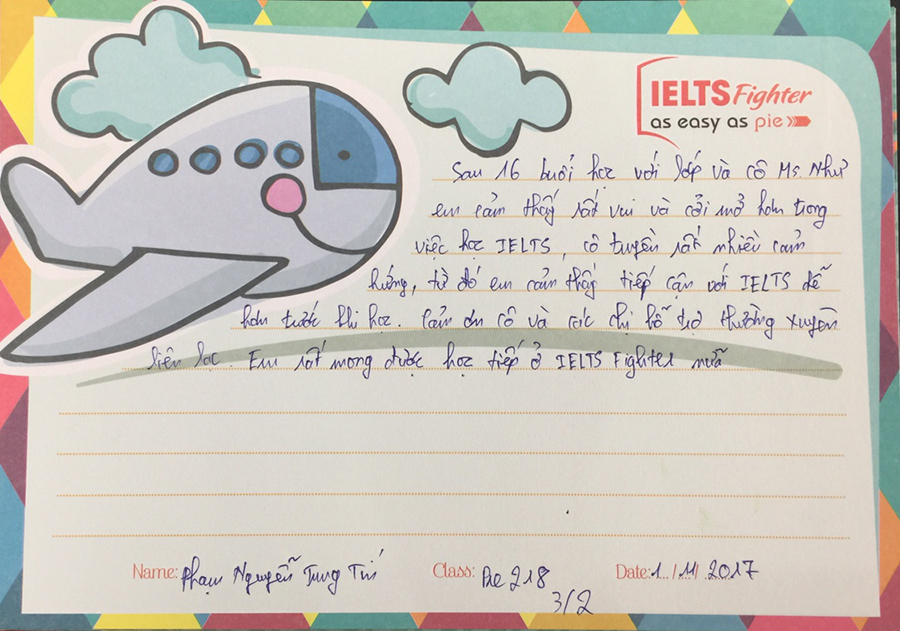 IELTS Fighter
as easy as pie
Sau 16 buổi học với lớp và cô Ms. Như
em cảm thấy rất vui và cởi mở hơn trong
việc học IELTS, cô truyền rất nhiều cảm
hứng, từ đó em cảm thấy tiếp cận với IELTS dễ
hơn trước khi học. Cảm ơn cô và các chị hỗ trợ thường xuyên
liên lạc. Em rất mong được học tiếp ở IELTS Fighter nữa
Name: Phạm Nguyễn Trung Tín Class: Pre 218 Date: 1 / 11 / 2017
3/2